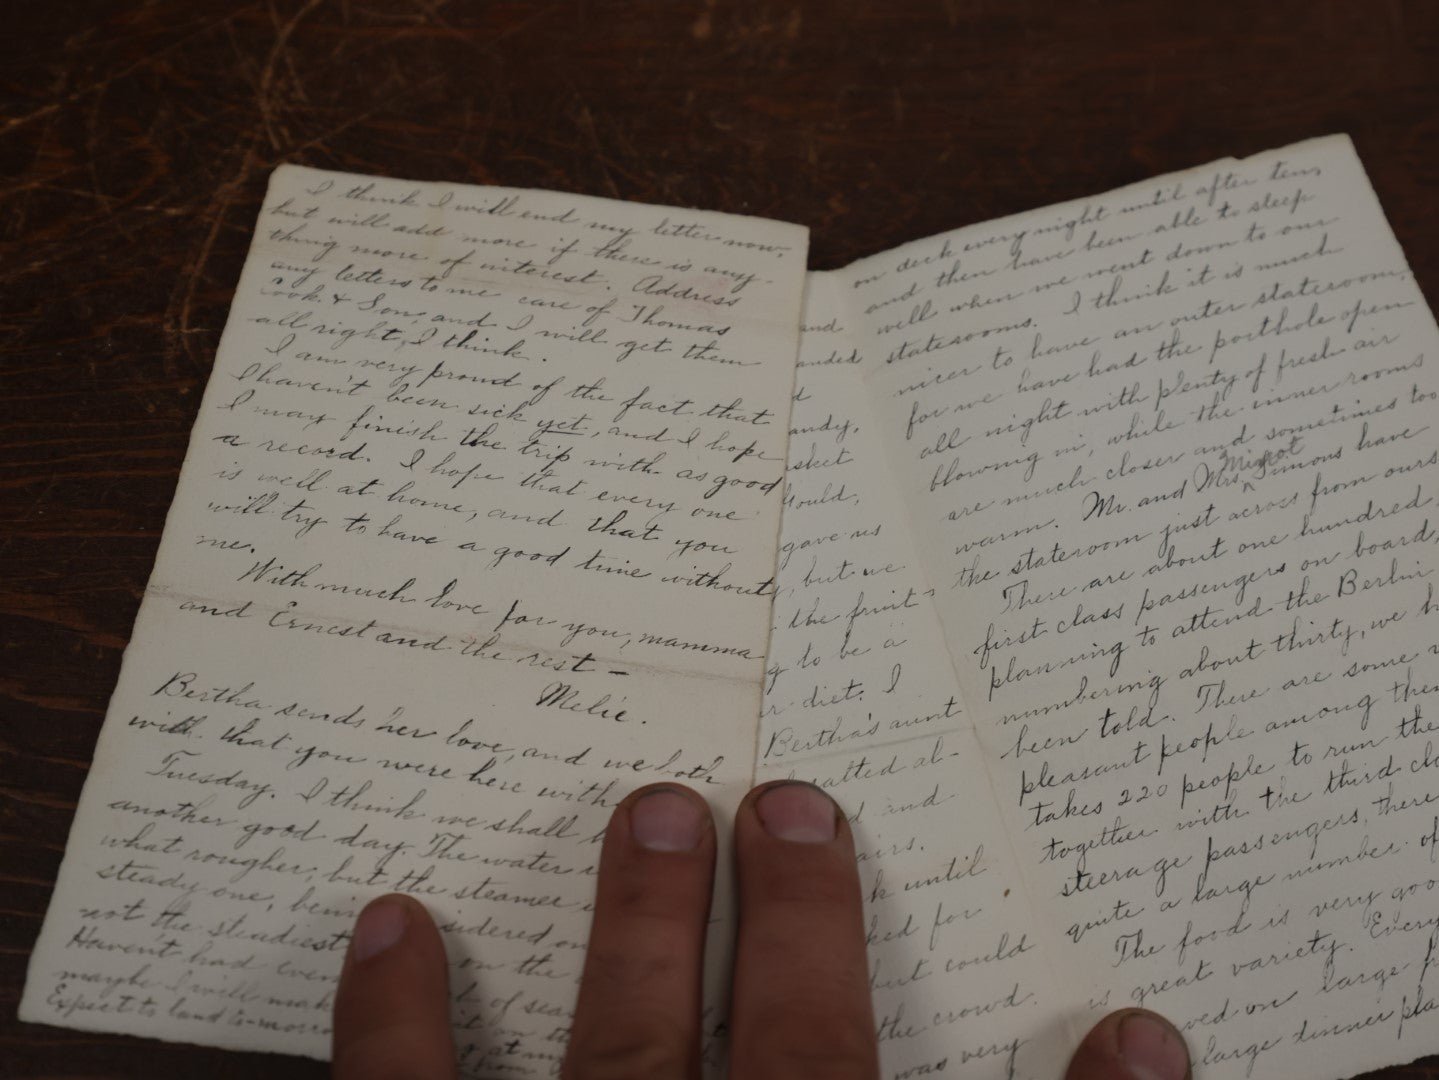 I think I will end my letter now,
but will add more if there is any-
thing more of interest. Address
any letters to me care of Thomas
Cook & Son, and I will get them
all right, I think.
I am very proud of the fact that
I haven't been sick yet, and I hope
I may finish the trip with as good
a record. I hope that every one
is well at home, and that you
will try to have a good time without
me.
With much love for you, mamma
and Ernest and the rest –
Melie.
Bertha sends her love, and we both
wish that you were here with
Tuesday. I think we shall
another good day. The water
what rougher, but the steamer
steady one, being sidered
not the steadiest on the
Haven't had even of sea
maybe I will make it on the
Expect to land to-morrow at my
from
and
anded
d
andy,
asket
Gould,
gave us
, but we
the fruit
g to be a
r diet. I
Bertha's aunt
salted al-
d and
airs.
k until
ked for
but could
the crowd.
was very
on deck every night until after ten,
and then have been able to sleep
well when we went down to our
staterooms. I think it is much
nicer to have an outer stateroom,
for we have had the porthole open
all night with plenty of fresh air
blowing in, while the inner rooms
are much closer and sometimes too
warm. Mr. and Mrs. Minot Simons have
the stateroom just across from ours
There are about one hundred
first class passengers on board,
planning to attend the Berlin
numbering about thirty, we h
been told. There are some
pleasant people among them
takes 220 people to run the
together with the third cl
steerage passengers, there
quite a large number of
The food is very goo
is great variety. Every
ved on large
large dinner pla